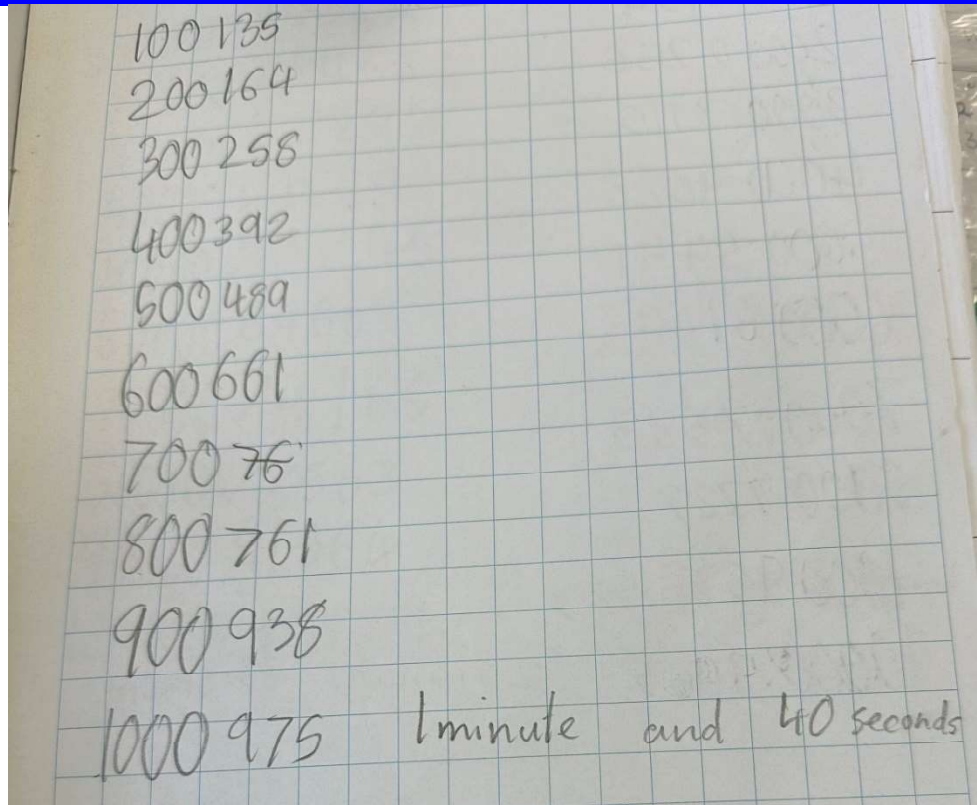 100 135
200 164
300 258
400 392
500 489
600 661
700 76
800 761
900 938
1000 975 1 minute and 40 seconds